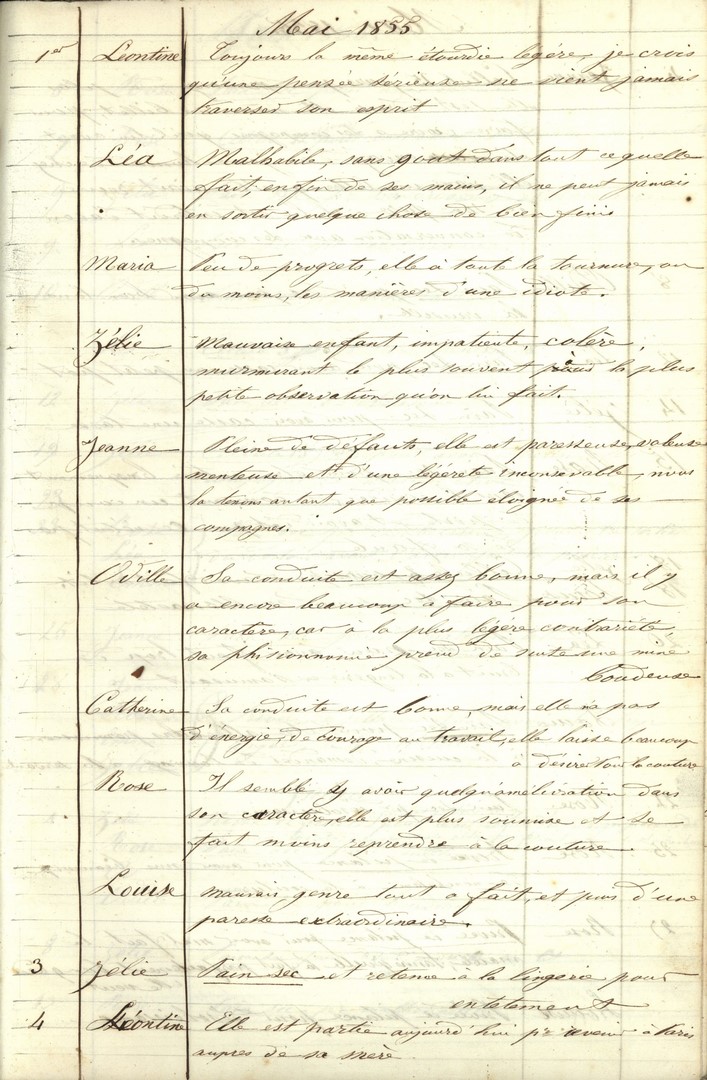 Mai 1855
1er Léontine Toujours la même étourdie legère, je crois
qu'une pensée sérieuse ne vient jamais
traverser son esprit
Léa Malhabile, sans gout dans tout ce quelle
fait; enfin de ses mains, il ne peut jamais
en sortir quelque chose de bien finis
Maria Peu de progrets, elle à toute la tournure, ou
du moins, les manières d'une idiote.
Zélie Mauvaise enfant, impatiente, colère,
murmurant le plus souvent à la plus
petite observation qu'on lui fait.
Jeanne Pleine de défauts, elle est paresseuse, voleuse
menteuse et d'une légérete inconsevable, nous
la tenons autant que possible éloignée de ses
compagnes.
Odille Sa conduite est assez bonne, mais il y
a encore beaucoup à faire pour son
caractère, car à la plus légère contrariété,
sa phisionnomie prend de suite une mine
boudeuse
Catherine Sa conduite est bonne, mais elle n'a pas
d'énergie, de courage au travail, elle laisse beaucoup
a désirer pour la couture
Rose Il semble y avoir quelqu'amélioration dans
son caractère, elle est plus soumise et se
fait moins reprendre à la couture
Louise mauvais genre tout a fait, et puis d'une
paresse extraordinaire.
3 Zélie Pain sec et retenue à la lingerie pour
entetement
4 Léontine Elle est partie aujourd'hui à Paris
aupres de sa mère